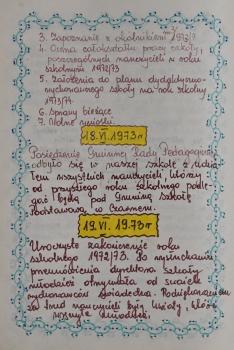 3. Zapoznanie z okólnikiem
4. Ocena całokształtu pracy szkoły,
poszczególnych nauczycieli w roku
szkolnym 1972/73
5. Założenia do planu dydaktyczno-
wychowawczego szkoły na rok szkolny
1973/74.
6. Sprawy bieżące
7. Wolne wnioski.
18.VI.1973r
Posiedzenie Gminnej Rady Pedagogicznej
odbyło się w naszej szkole z udzia-
łem wszystkich nauczycieli, którzy
od przyszłego roku szkolnego podle-
gać będą pod Gminną Szkołę
Podstawową w
19.VI.1973r
Uroczyste zakończenie roku
szkolnego 1972/73. Po wysłuchaniu
przemówienia dyrektora szkoły
młodzież otrzymała od swoich
wychowawców świadectwa. Podziękowaniem
za trud nauczycieli były kwiaty, które
wręczyła młodzież.